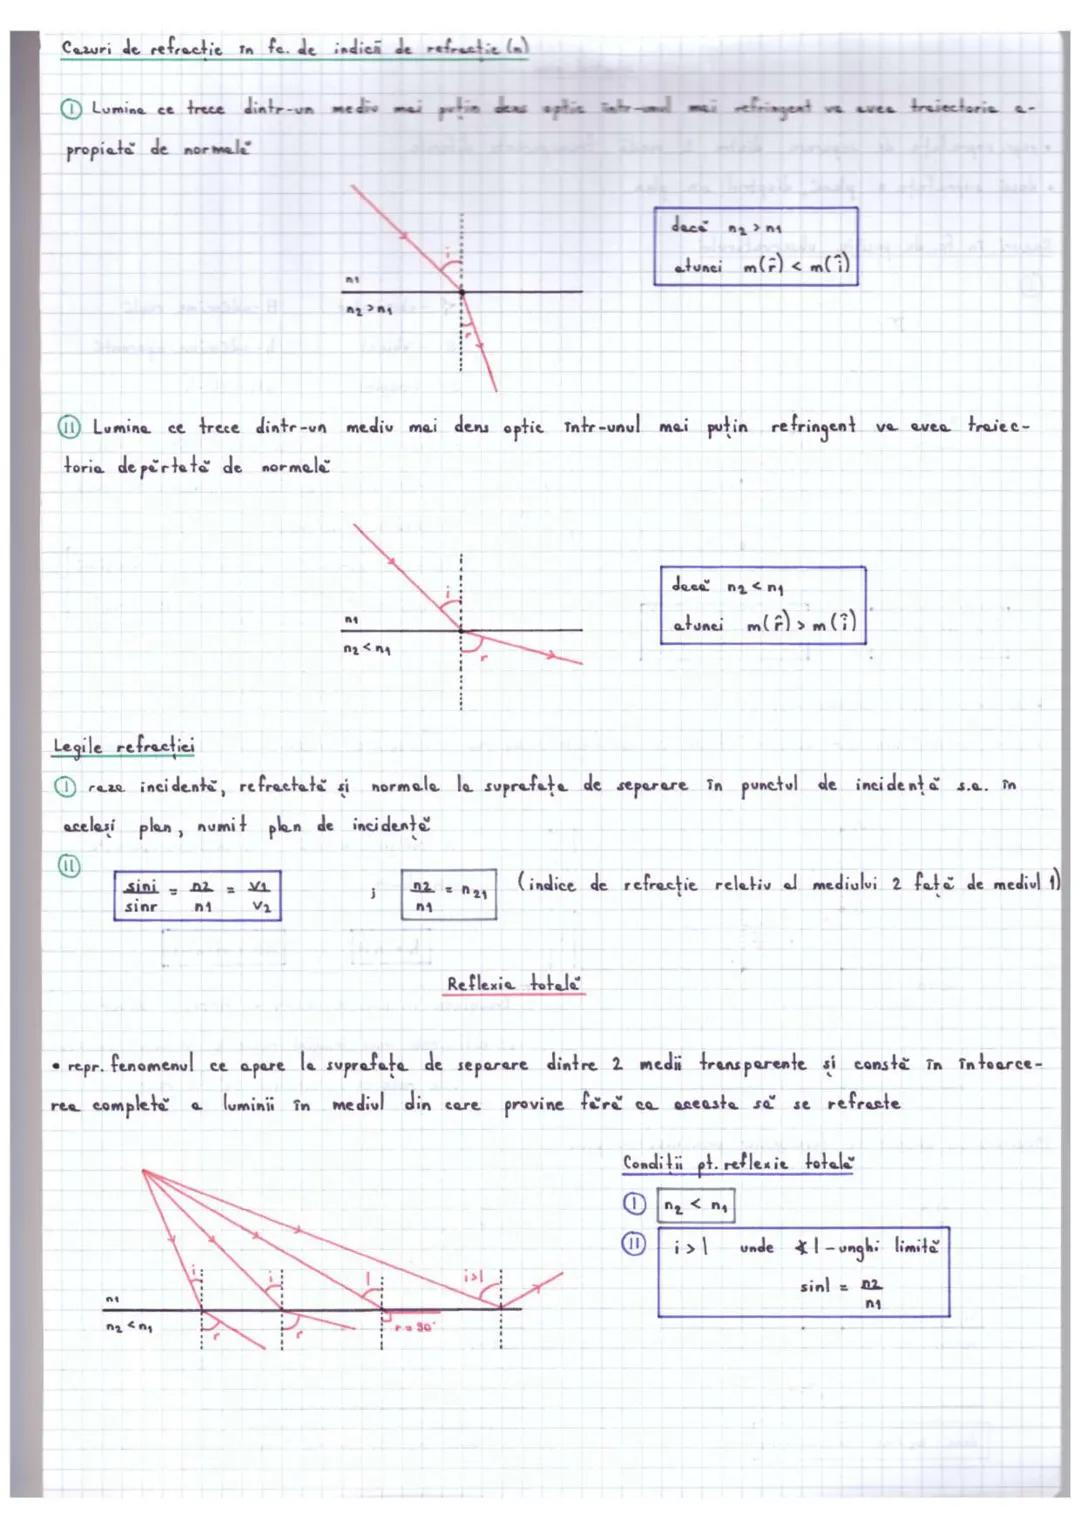 Cazuri de refracție în fc. de indicii de refracție (n)
Ⓘ Lumina ce trece dintr-un mediu mai puțin dens optic într-unul mai refringent va avea traiectoria a-
propiată de normală
i
n1
n2 > n1
r
dacă n2 > n1
atunci m(r̂) < m(î)
Ⓘⓘ Lumina ce trece dintr-un mediu mai dens optic într-unul mai puțin refringent va avea traiec-
toria depărtată de normală
i
n1
n2 < n1
r
dacă n2 < n1
atunci m(r̂) > m(î)
Legile refracției
Ⓘ raza incidentă, refractată și normala la suprafața de separare în punctul de incidență s.a. în
același plan, numit plan de incidență
Ⓘⓘ
sini/sinr = n2/n1 = v1/v2 ; n2/n1 = n21 (indice de refracție relativ al mediului 2 față de mediul 1)
Reflexia totală
• repr. fenomenul ce apare la suprafața de separare dintre 2 medii transparente și constă în întoarce-
rea completă a luminii în mediul din care provine fără ca aceasta să se refracte
Condiții pt. reflexie totală
Ⓘ n2 < n1
Ⓘⓘ i > l unde ∢l - unghi limită
sinl = n2/n1
i i l i>l
n1
n2 < n1
r r r = 90°